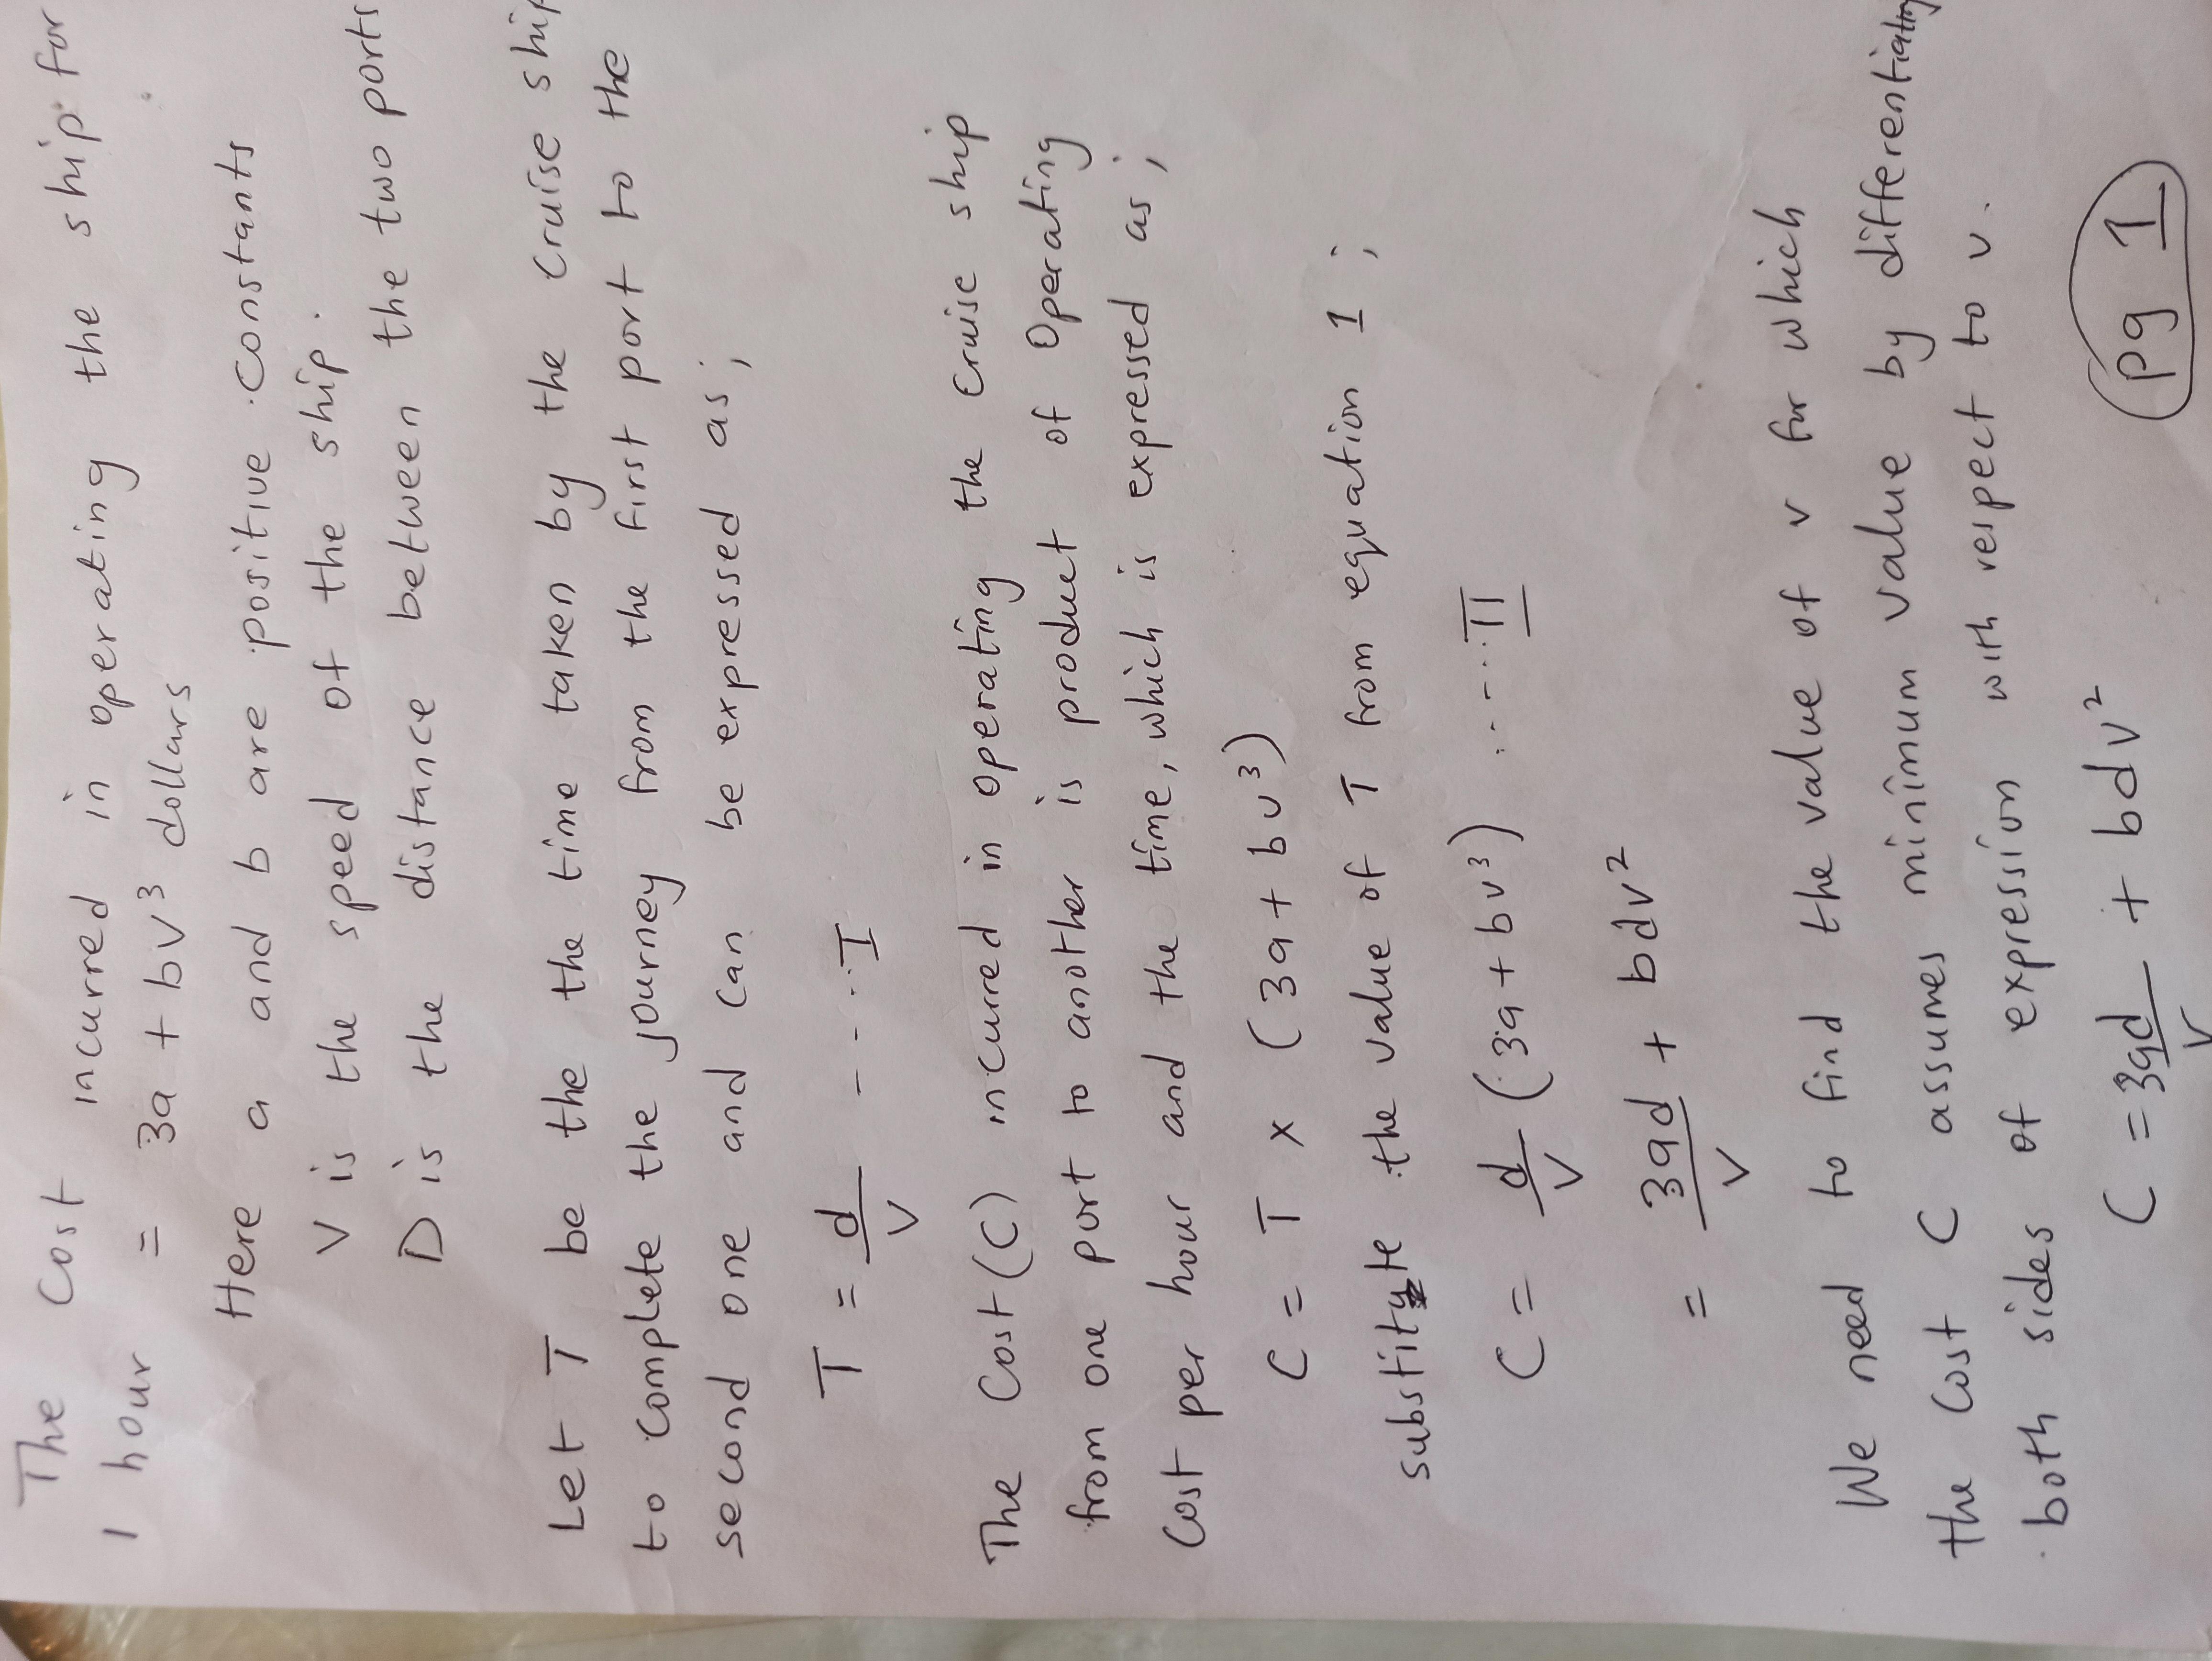 The Cost incurred in operating the ship for
1 hour = 3a + bv³ dollars
Here a and b are positive constants
V is the speed of the ship.
D is the distance between the two ports
Let T be the the time taken by the cruise ship
to complete the journey from the first port to the
second one and can be expressed as;
T = d/V - - - .. I
The Cost (C) incurred in operating the cruise ship
from one port to another is product of operating
Cost per hour and the time, which is expressed as;
C = T x (3a + bv³)
substitute the value of T from equation 1;
C = d/V (3a + bv³) ..-... II
= 3ad/V + bdv²
We need to find the value of v for which
the Cost C assumes minimum value by differentiating
both sides of expression with respect to v.
C = 3ad/V + bdv²
pg 1